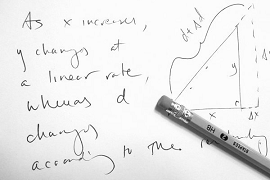 As x increases,
y changes at
a linear rate,
whereas d
changes
according to the
d + Δd
y
x
Δx
HB